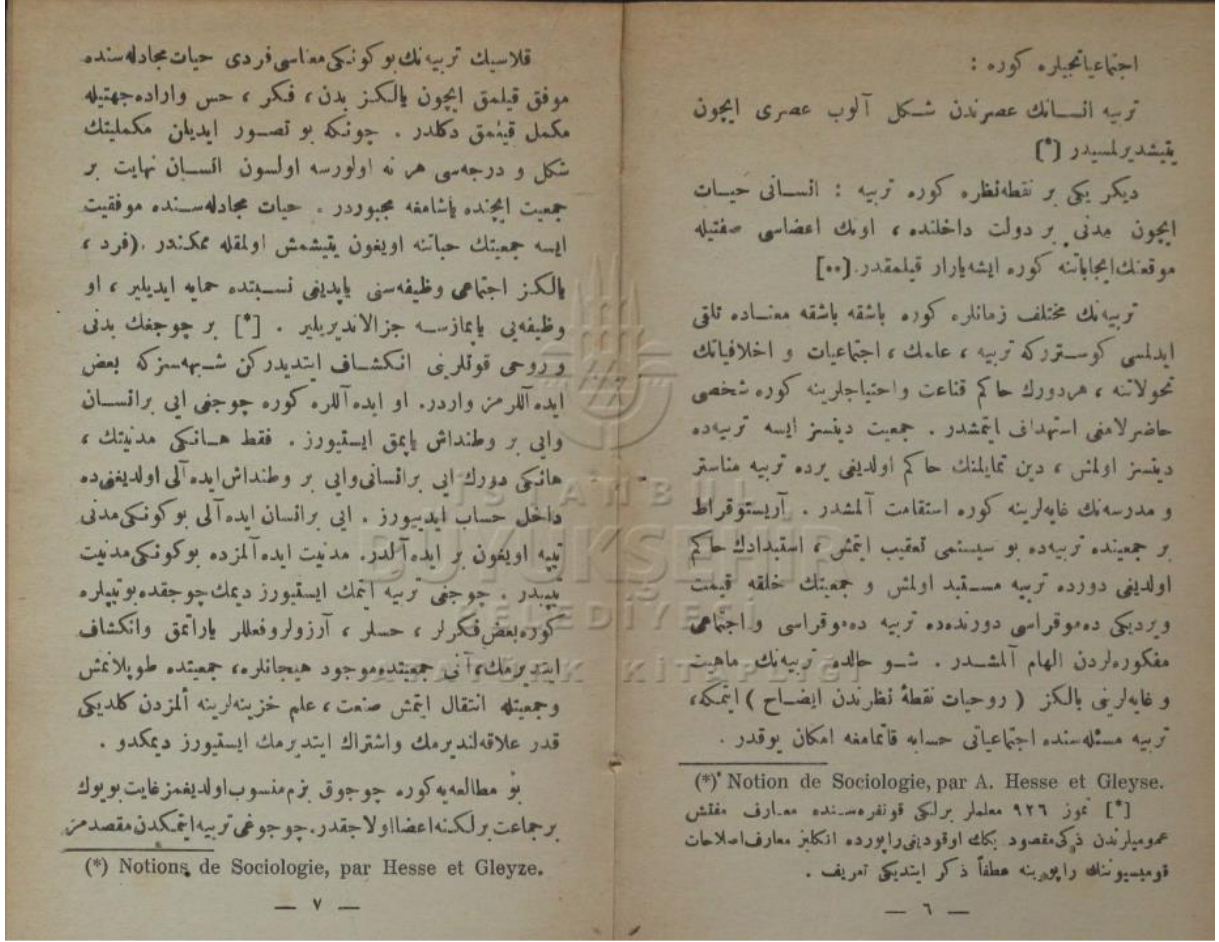 اجتماعیاتجیلره کوره :
تربیه انسـانك عصرندن شـكل آلوب عصری ایچون
یتیشدیرلمسیدر [*]
دیكر یكی بر نقطه‌نظره كوره تربیه : انسـانی حیـات
ایچون مدنی بر دولت داخلنده ، اونك اعضاسی صفتیله
موقعنك‌ایجاباتنه كوره ایشه‌یارار قیلمقدر.[••]
تربیه‌نك مختلف زمانلره كوره باشقه باشقه معنـاده تلقی
ایدلمسی كوسـتررکه تربیه ، علمك ، اجتماعیات و اخلاقیاتك
تحولاتنه ، هردورك حاكم قناعت واحتیاجلرینه كوره شخصی
حاضرلامغی استهداف ایتمشدر . جمعیت دینسز ایسه تربیه‌ده
دینسز اولمش ، دین تمایلنك حاكم اولدیغی یرده تربیه مناستر
و مدرسه‌نك غایه‌لرینه كوره استقامت آلمشدر . آریستوقراط
بر جمعیتده تربیه‌ده بو سیستمی تعقیب ایتمش ، استبدادك حاكم
اولدیغی دورده تربیه مسـتبد اولمش و جمعیتك خلقه قیمت
ویردیكی ده‌موقراسی دورنده‌ده تربیه ده‌موقراسی و اجتماعی
مفكوره‌لردن الهام آلمشـدر . شـو حالده تربیه‌نك ماهیت
و غایه‌لرینی یالكز ( روحیات نقطهٔ نظرندن ایضـاح ) ایتمكه،
تربیه مسئله‌سنده اجتماعیاتی حسابه قاتمامغه امكان یوقدر .
(*) Notion de Sociologie, par A. Hesse et Gleyse.
[*] تموز ٩٢٦ معلملر برلكی قونفره‌سـنده معـارف مفتش
عمومیلرندن ذكی‌مقصود بكك اوقودینی‌راپورده انكلیز معارف‌اصلاحات
قومیسیوننك راپورینه عطفاً ذكر ایتدیكی تعریف .
— ٦ —
قلاسیك تربیه‌نك‌بو كونكی‌معناسی‌فردی حیات مجادله‌سنده
موفق قیلمق ایچون یالكز بدن ، فكر ، حس واراده‌جهتیله
مكمل قیلمق دكلدر . چونكه بو تصـور ایدیلن مكملیتك
شكل و درجه‌سی هر نه اولورسه اولسون انسـان نهایت بر
جمعیت ایچنده یاشامغه مجبوردر . حیات مجادله‌سـنده موفقیت
ایسه جمعیتك حیاتنه اویغون یتیشمش اولمقله ممكندر .(فرد ،
یالكز اجتماعی وظیفه‌سنی یاپدیغی نسـبتده حمایه ایدیلیر ، او
وظیفه‌یی یاپمازسـه جزالاندیریلیر . [*] بر چوجغك بدنی
و روحی قوتلرینی انكشـاف ایتدیدركن شـبهه‌سزكه بعض
ایده‌آللرمز واردر. او ایده‌آللره كوره چوجغی ایی برانسـان
وایی بر وطنداش یاپمق ایستیورز . فقط هـانكی مدنیتك ،
هانكی دورك ایی برانسانی‌وایی بر وطنداش‌ایده‌آلی اولدیغنی‌ده
داخل حساب ایدییورز . ایی برانسان ایده‌آلی بو كونكی‌مدنی
تیپه اویغون بر ایده‌آلدر. مدنیت ایده‌آلمزده بوكونكی‌مدنیت
تیپیدر . چوجغی تربیه ایتمك ایستیورز دیمك‌چوجقده‌بوتیپلره
كوره‌بعض‌فكرلر ، حسلر ، آرزولروفعللر یاراتمق وانكشاف
ایتدیرمك،آنی جمعیتده‌موجود هیجانلره، جمعیتده طوپلانمش
وجمعیتله انتقال ایتمش صنعت ، علم خزینه‌لرینه المزدن كلدیكی
قدر علاقه‌لندیرمك واشتراك ایتدیرمك ایستیورز دیمكدو .
بو مطالعه‌یه‌كوره چوجوق بزم‌منسوب‌اولدیغمز‌غایت‌بویوك
برجماعت برلكنه‌اعضااولاجقدر.چوجوغی‌تربیه‌ایتمكدن‌مقصدمز
(*) Notions de Sociologie, par Hesse et Gleyze.
— ٧ —
İSTANBUL
BÜYÜKŞEHİR
BELEDİYESİ
ATATÜRK KİTAPLIĞI